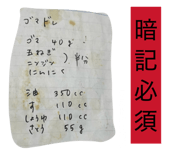 ゴマドレ
ゴマ 40g
玉ねぎ
ニンジン
にんにく
油 350cc
す 110cc
しょうゆ 110cc
さとう 55g
暗記必須